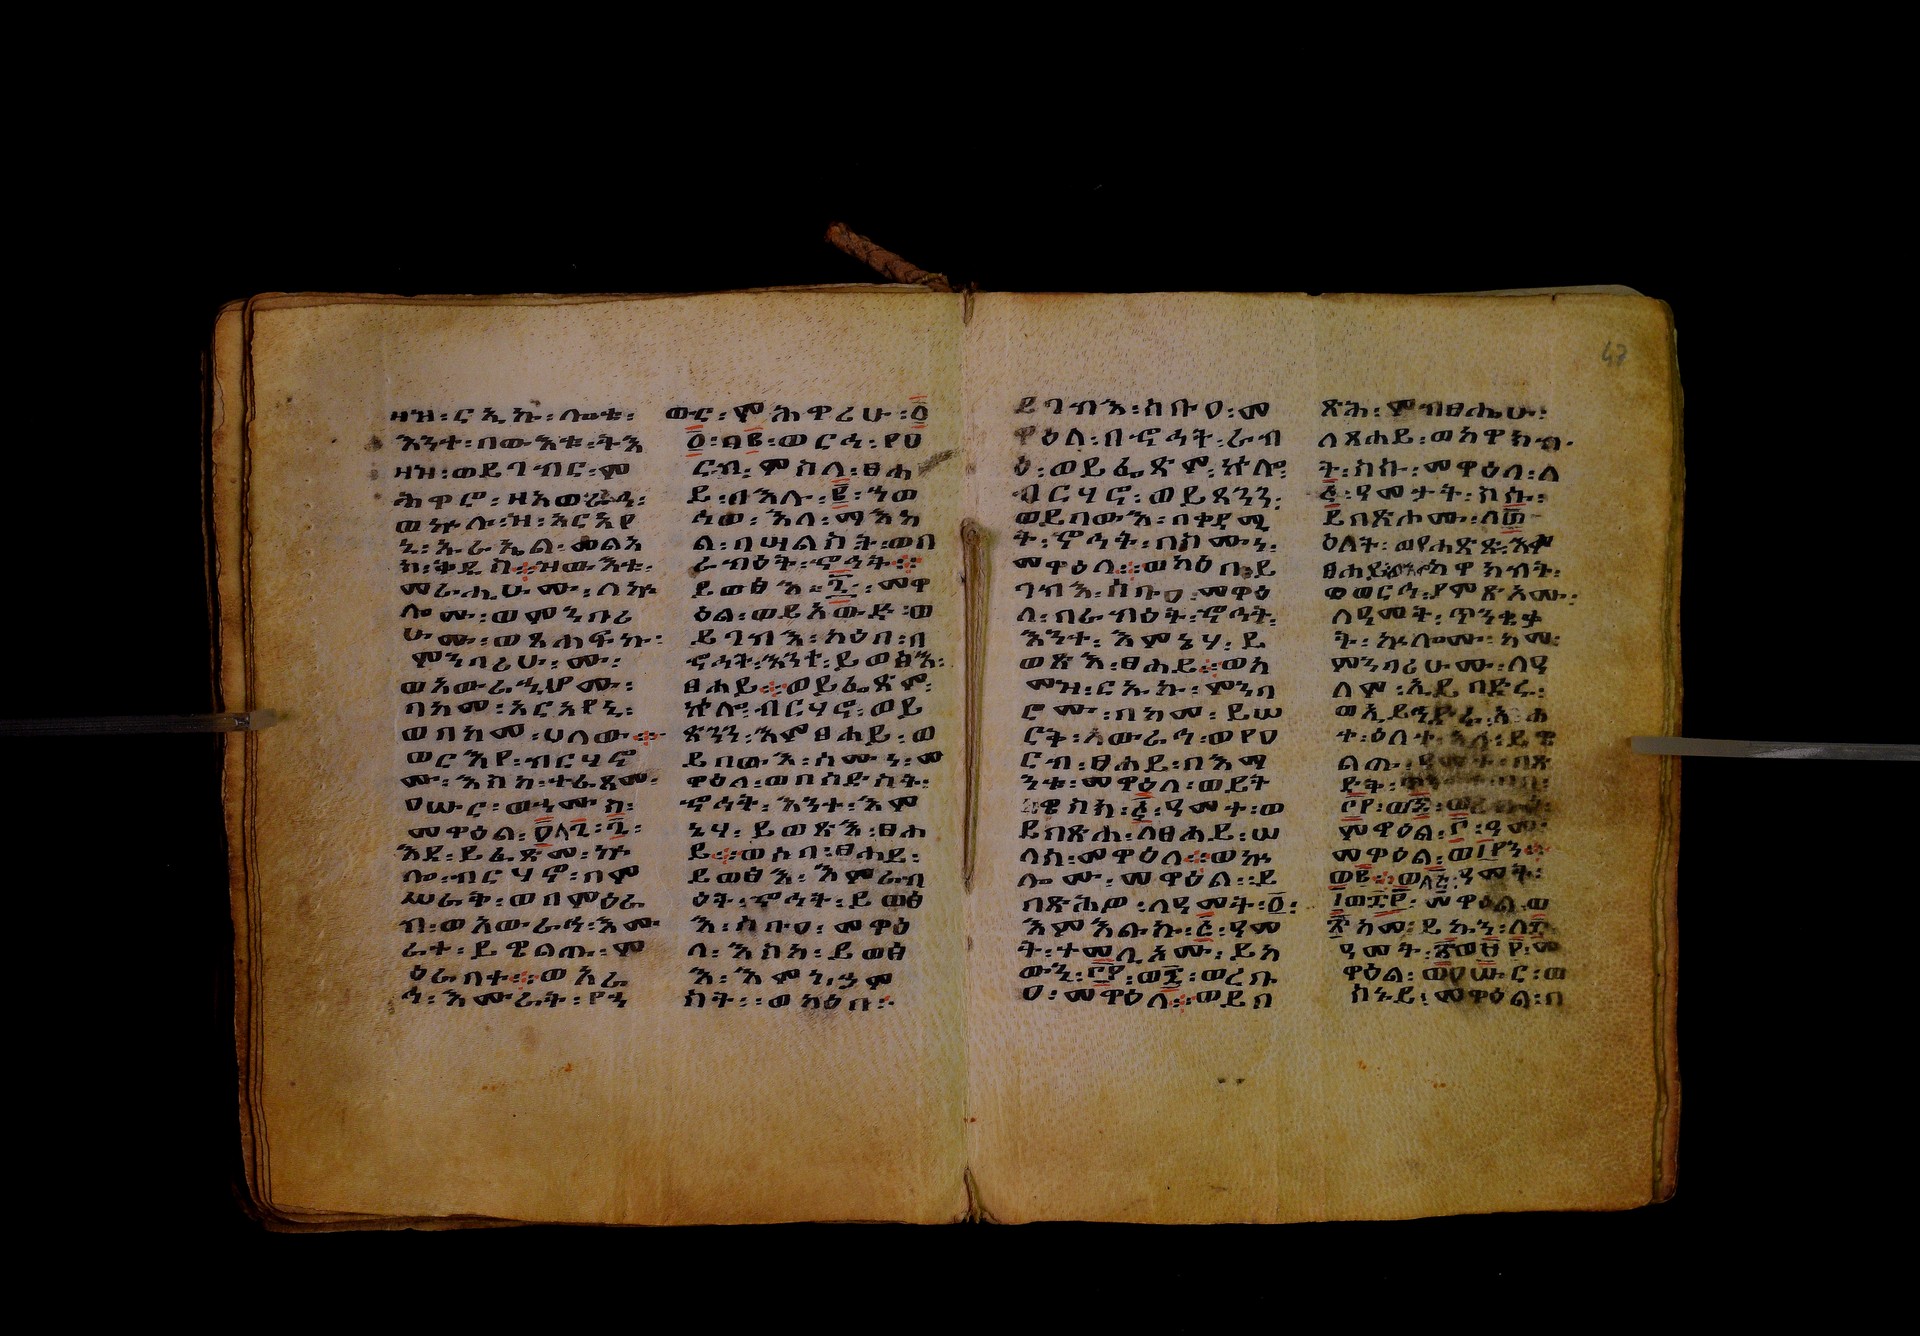 ዛዝ፡ ርኢኩ፡ ሎቱ፡
እንተ፡ በውእቱ፡ ትእ
ዛዝ፡ ወይገብር፡ ም
ሕዋሮ፡ ዘአወራኂ፡
ወኵሎ፡ ዝ፡ አርአየ
ኒ፡ ኡራኤል፡ መልአ
ክ፡ ቅዱስ። ዝውእቱ፡
መራሒሆሙ፡ ለኵ
ሎሙ፡ ወምንባሪ
ሆሙ፡ ወጸሐፍኩ፡
ምንባሪሆሙ፡
ወአውራኂሆሙ፡
በከመ፡ አርአየኒ፡
ወበከመ፡ ሀለው።
ወርእየ፡ ብርሃኖ
ሙ፡ እስከ፡ ተፈጸመ፡
ዐሡር፡ ወኃሙስ፡
መዋዕል፡
እደ፡ ይፌጽሙ፡ ኵ
ሎ፡ ብርሃኖ፡ በም
ሥራቅ፡ ወበምዕራ
ብ፡ ወአውራኅ፡ እሙ
ራት፡ ይዌልጡ፡ ም
ዕራባተ። ወአሪ
ኅ፡ እሙራት፡ የኃ
ውር፡ ምሕዋሪሁ፡ ፩
፩፡ በ፪፡ ወርኅ፡ የዐ
ርብ፡ ምስለ፡ ፀሐ
ይ፡ በእሉ፡ ፪፡ ኀወ
ኅወ፡ እለ፡ ማእከ
ል፡ በሣልስት፡ ወበ
ራብዕት፡ ኆኅት።
ይወፅእ፡ ፯፡ መዋ
ዕል፡ ወይአውድ፡ ወ
ይገብእ፡ ካዕበ፡ በ
ኆኅት፡ እንተ፡ ይወፅእ፡
ፀሐይ። ወይፌጽም፡
ኵሎ፡ ብርሃኖ፡ ወይ
ጸንን፡ እምፀሐይ፡ ወ
ይበውእ፡ ሰሙነ፡ መ
ዋዕለ፡ ወበስድስት፡
ኆኅት፡ እንተ፡ እም
ኔሃ፡ ይወጽእ፡ ፀሐ
ይ። ወሶበ፡ ፀሐይ፡
ይወፅእ፡ እምራብ
ዕት፡ ኆኅት፡ ይወፅ
እ፡ ሰቡዐ፡ መዋዕ
ለ፡ እስከ፡ ይወፅ
እ፡ እምኃም
ስት፡ ወካዕበ፡
ይገብእ፡ ሰቡዐ፡ መ
ዋዕለ፡ በኆኅት፡ ራብ
ዕ፡ ወይፌጽም፡ ኵሎ፡
ብርሃኖ፡ ወይጸንን፡
ወይበውእ፡ በቀዳሚ
ት፡ ኆኅት፡ በሰሙነ፡
መዋዕለ። ወካዕበ፡ ይ
ገብእ፡ ሰቡዐ፡ መዋዕ
ለ፡ በራብዕት፡ ኆኅት፡
እንተ፡ እምኔሃ፡ ይ
ወጽእ፡ ፀሐይ። ወከ
መዝ፡ ርኢኩ፡ ምንባ
ሮሙ፡ በከመ፡ ይሠ
ርቅ፡ አውራኅ፡ ወየዐ
ርብ፡ ፀሐይ፡ በእማ
ንቱ፡ መዋዕለ፡ ወይት
ዌሰክ፡ ፭፡ ዓመተ፡ ወ
ይበጽሐ፡ ለፀሐይ፡ ሠ
ላሰ፡ መዋዕለ። ወኵ
ሎሙ፡ መዋዕል፡ ይ
በጽሕዎ፡ ለዓመት፡ ፩፡
እምእሉ፡ ፭፡ ዓመ
ት፡ ተመሊአሙ፡ ይከ
ውኑ፡ ወረቡ
ዐ፡ መዋዕለ። ወይበ
ጽሕ፡ ምብፀሔሁ፡
ለጸሐይ፡ ወከዋክብ
ት፡ ስሱ፡ መዋዕለ፡ ለ
፭፡ ዓመታት፡ ስሱ፡
ይበጽሐሙ፡
ዕለት፡ ወየሐጽጽ፡ እም
ፀሐይ፡ ከዋክብት፡
ወወርኅ፡ ያምጽአሙ፡
ለዓመት፡ ጥንቁቃ
ት፡ ኩሎሙ፡ ከመ፡
ምንባሪሆሙ፡ ለዓ
ለም፡ ኢይበድሩ፡
ወኢይጐንድዩ፡ አሐ
ተ፡ ዕለተ፡ አላ፡ ይዌ
ልጡ፡ ዓመተ፡ በጽ
መዋዕል፡ ፫፡ ዓመ
መዋዕል፡
ዓመት፡
መዋዕል፡ ወ
ከመ፡ ይኩን፡
ዓመት፡ መ
ዋዕል፡ ወዐሡር፡ ወ
ሰኑይ፡ መዋዕል፡ በ